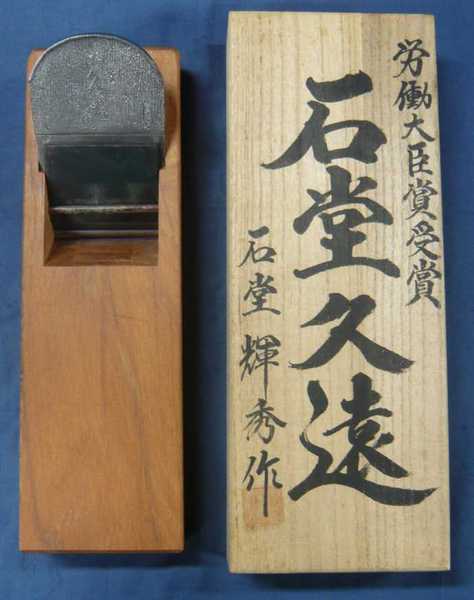 労働大臣賞受賞
石堂久遠
石堂輝秀作